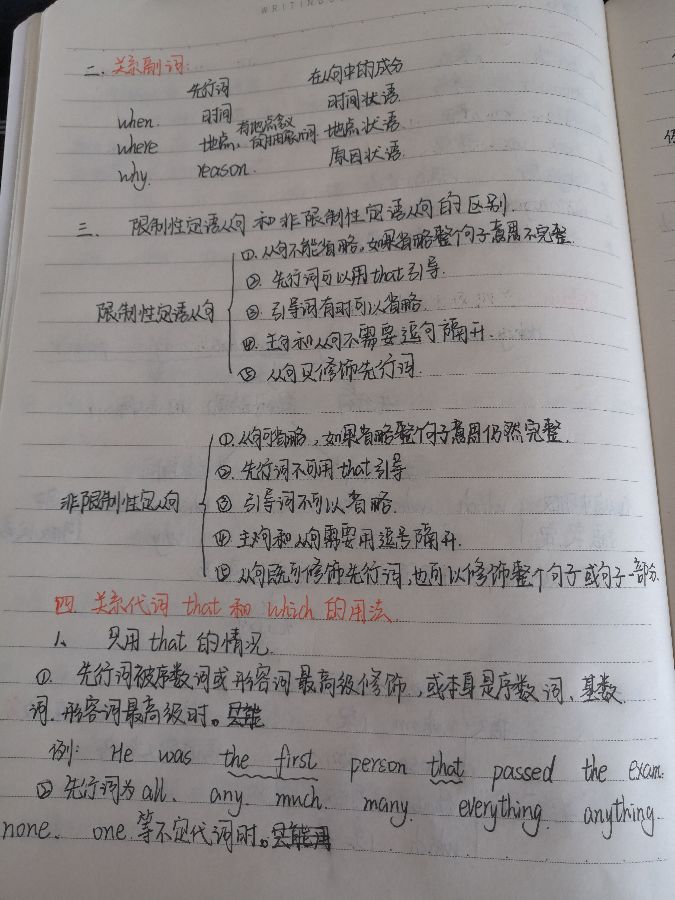 WRITING
二、关系副词:
先行词 在从句中的成分
when. 时间 时间状语.
where 地点, 有地点含义 地点状语.
why. reason. 原因状语.
三、 限制性定语从句和非限制性定语从句的区别.
①. 从句不能省略,如果省略整个句子意思不完整.
②. 先行词可以用that引导.
限制性定语从句 ③. 引导词有时可以省略.
④. 主句和从句不需要逗句隔开.
⑤ 从句只修饰先行词.
①. 从句可省略,如果省略整个句子意思仍然完整.
②. 先行词不可用that引导
非限制性定从句 ③ 引导词不可以省略.
④ 主句和从句需要用逗号隔开.
⑤ 从句既可修饰先行词,也可以修饰整个句子或句子一部分.
四 关系代词 that 和 which 的用法
1、 只用that的情况.
①. 先行词被序数词或形容词最高级修饰,或本身是序数词、基数
词、形容词最高级时。
例: He was the first person that passed the exam.
② 先行词为all、 any. much. many. everything. anything.
none、 one 等不定代词时。